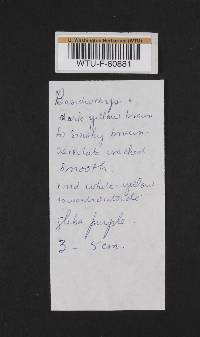 U. Washington Herbarium (WTU)
WTU-F-60881
Basidiocarps
dark yellow brown
to smoky brown
cracked
smooth.
and white-yellow
toward outside
purple.
3 - 5 cm.